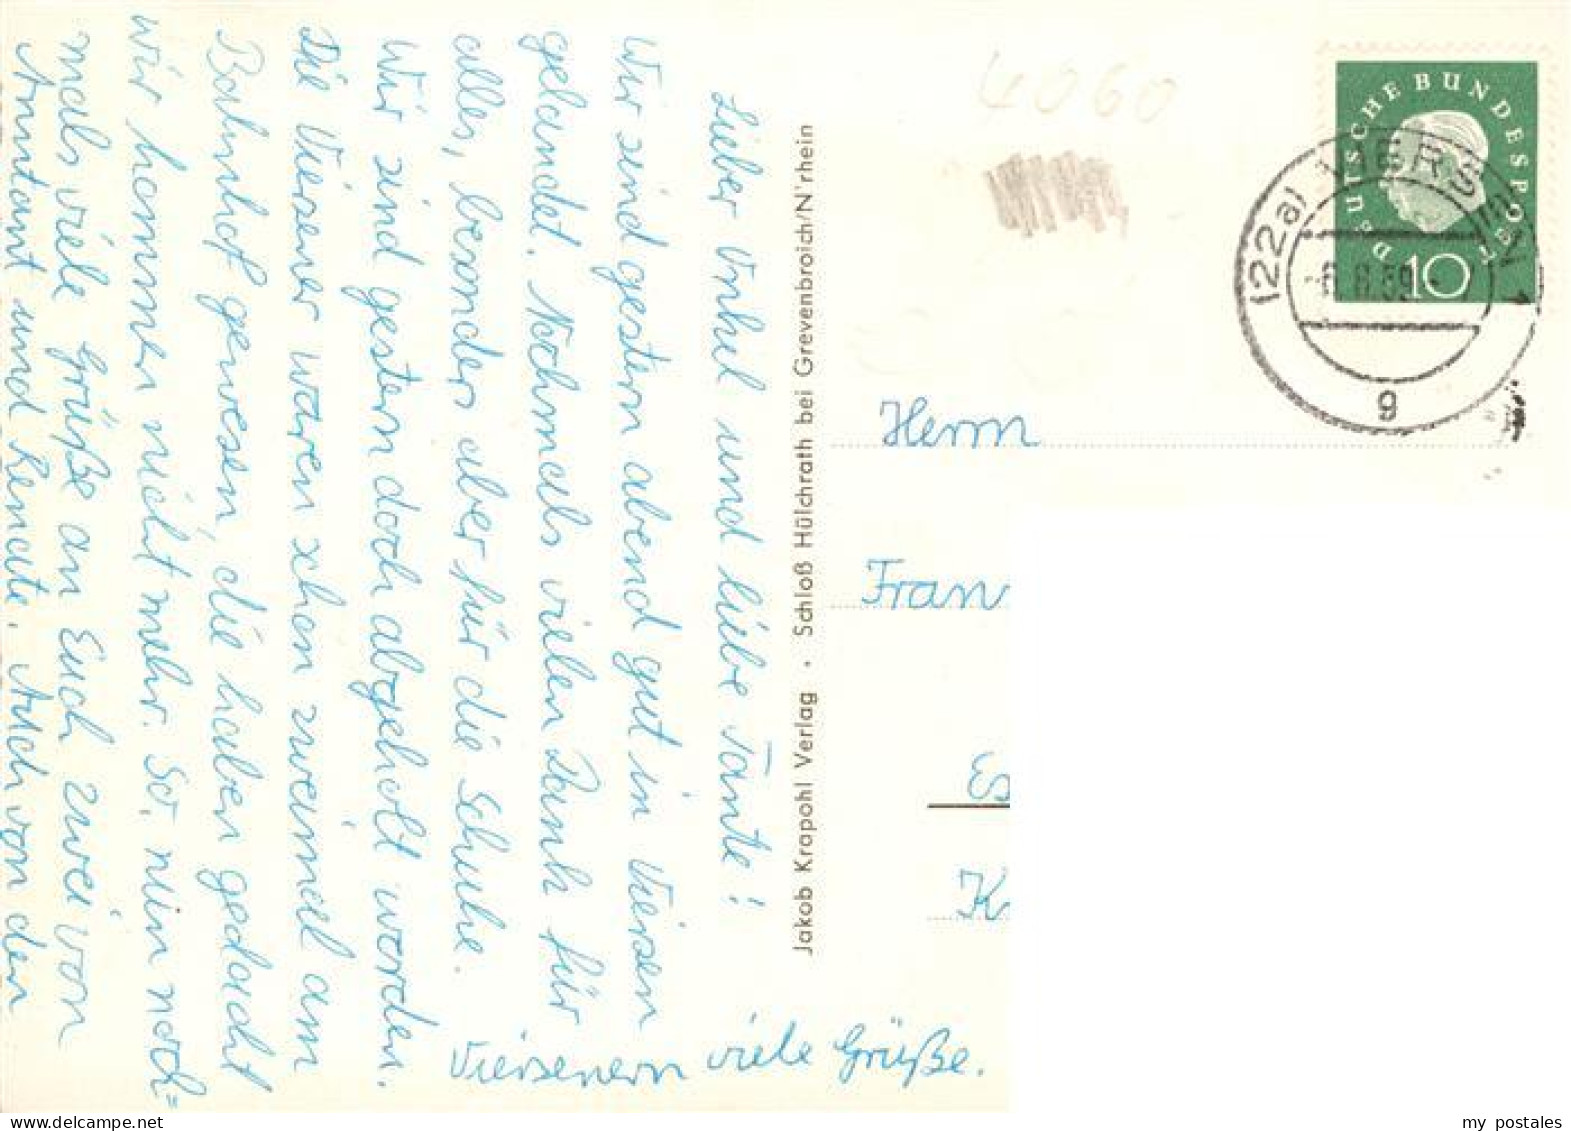 Lieber Onkel und liebe Tante!
Wir sind gestern abend gut in Viersen
gelandet. Nochmals vielen Dank für
alles, besonders aber für die Schuhe.
Wir sind gestern doch abgeholt worden.
Die Viersener waren schon zweimal am
Bahnhof gewesen, die haben gedacht
wir kommen nicht mehr. So, nun noch=
mals viele Grüße an Euch zwei von
Anntant und Renate. Auch von den
Viersenern viele Grüße.
Jakob Krapohl Verlag · Schloß Hülchrath bei Grevenbroich/N'rhein
4060
DEUTSCHE BUNDESPOST
10
(22a) VIERSEN 1
-6.8.59-
g
Herrn
Fran
Es
K
my postales